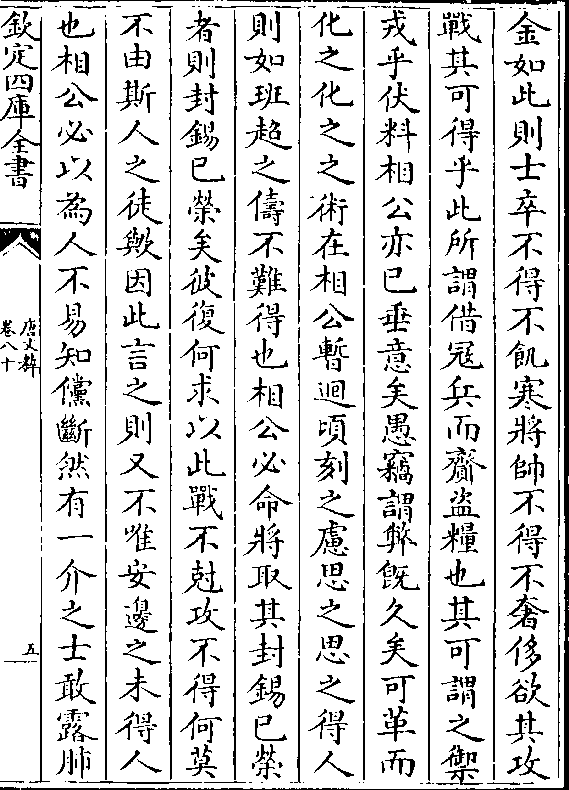 金如此則士卒不得不飢寒將帥不得不奢侈欲其攻
戰其可得乎此所謂借冦兵而齎盗糧也其可謂之禦
戎乎伏料相公亦已垂意矣愚竊謂弊既久矣可革而
化之化之之術在相公暫迴頃刻之慮思之思之得人
則如班超之儔不難得也相公必命將取其封錫已榮
者則封錫已榮矣彼復何求以此戰不尅攻不得何莫
不由斯人之徒歟因此言之則又不唯安邊之未得人
也相公必以為人不易知儻斷然有一介之士敢露肺
欽定四庫全書
唐文粹
卷八十
五